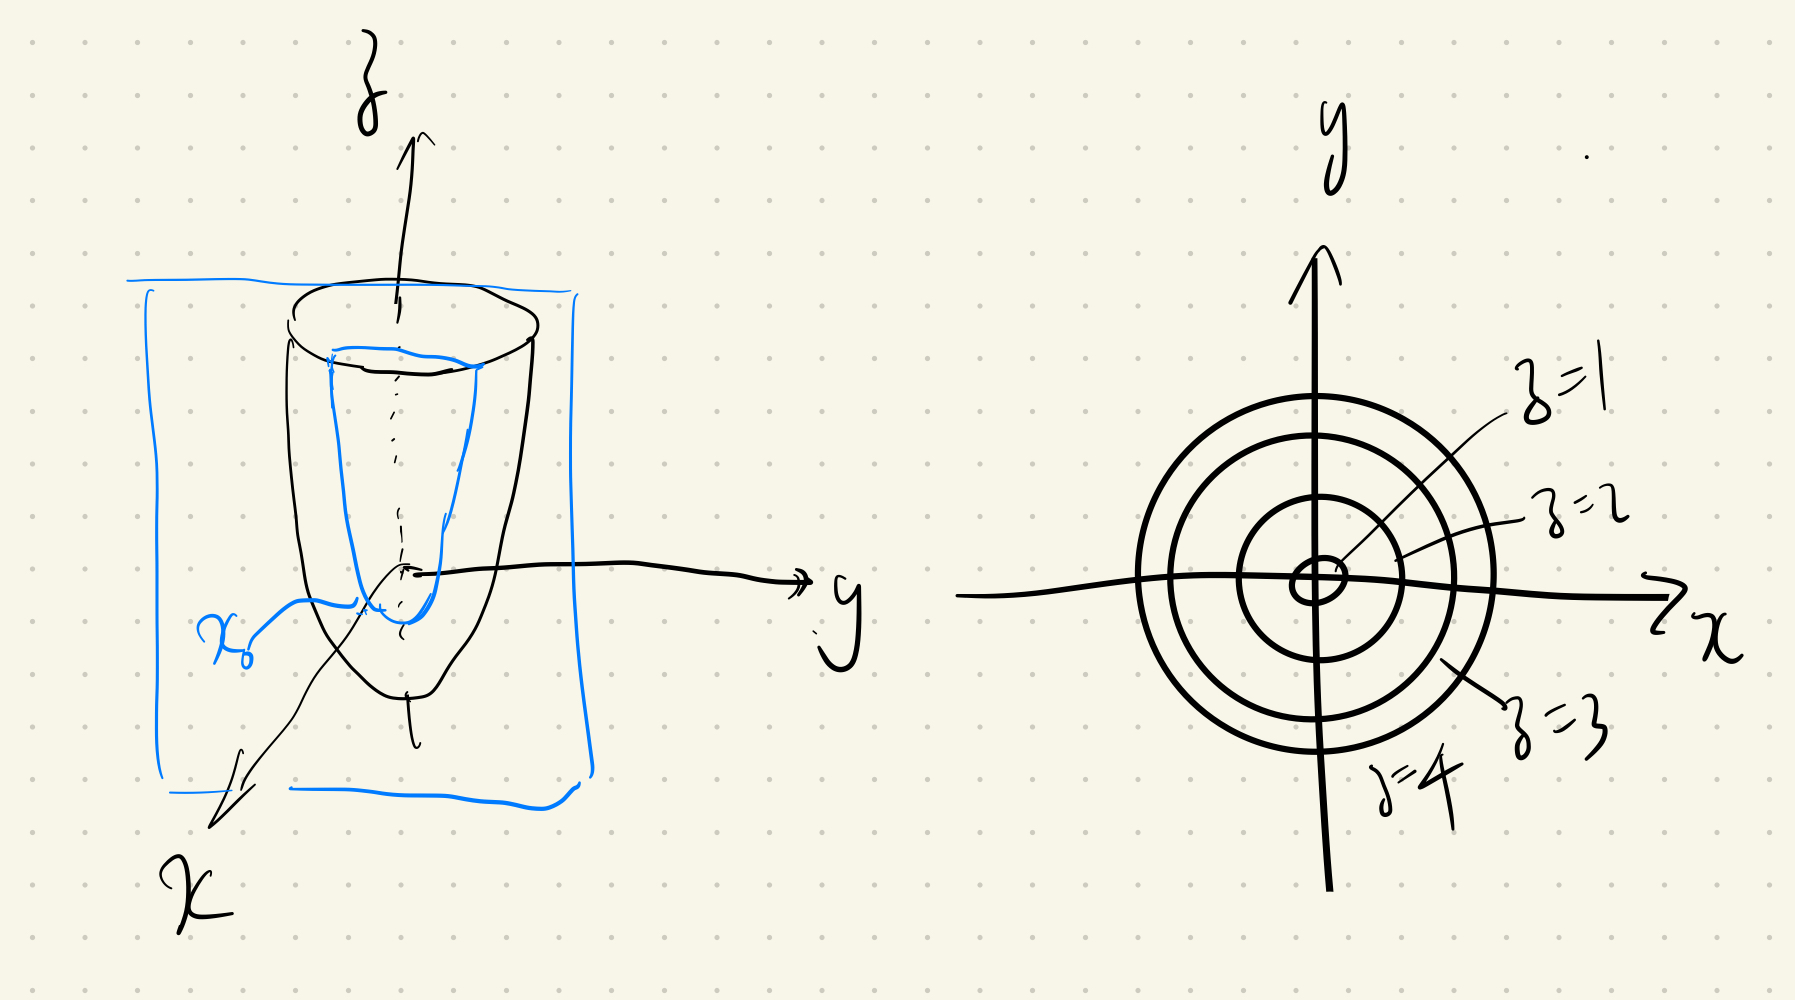 z
y
x₀
x
y
z=1
z=2
x
z=3
z=4